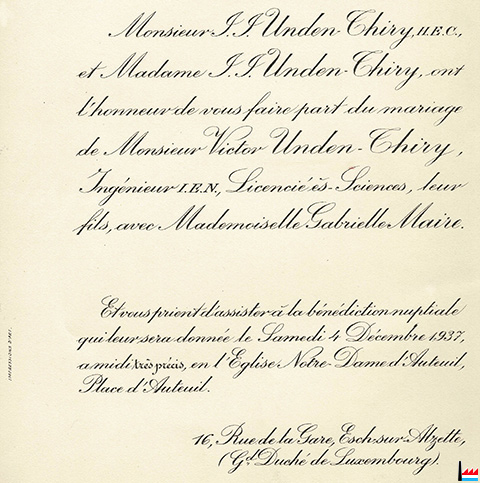 Monsieur J. J. Unden-Thiry, H.E.C.,
et Madame J. J. Unden-Thiry, ont
l'honneur de vous faire part du mariage
de Monsieur Victor Unden-Thiry,
Ingénieur I.E.N., Licencié ès-Sciences, leur
fils, avec Mademoiselle Gabrielle Maire.
Et vous prient d'assister à la bénédiction nuptiale
qui leur sera donnée le Samedi 4 Décembre 1937,
a midi très précis, en l'Eglise Notre-Dame d'Auteuil,
Place d'Auteuil.
16, Rue de la Gare, Esch-sur-Alzette,
(Gd. Duché de Luxembourg).